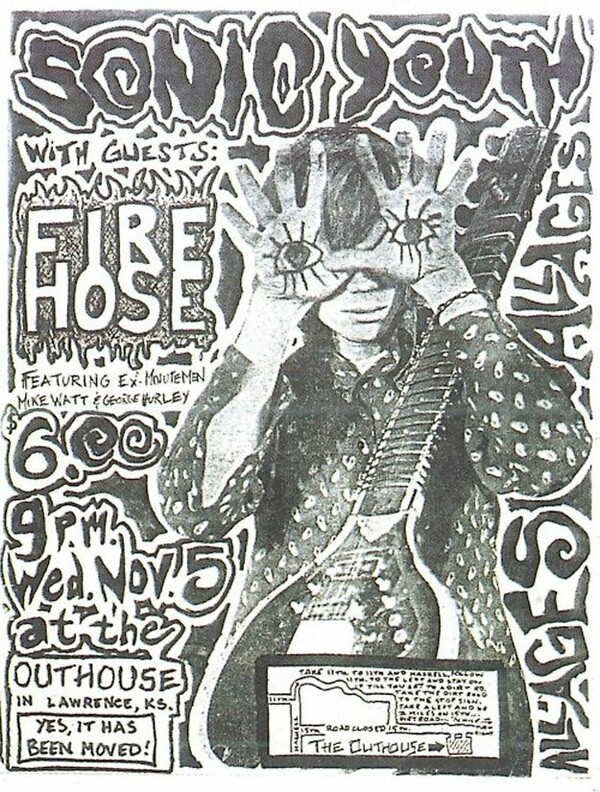 SONIC YOUTH
WITH GUESTS:
FIRE
HOSE
FEATURING EX-MINUTEMEN
MIKE WATT & GEORGE HURLEY
$6.00
9 p.m.
Wed. Nov. 5
at the
OUTHOUSE
IN LAWRENCE, KS.
YES, IT HAS
BEEN MOVED!
ALL AGES
ALL AGES
TAKE 11TH. TO 11TH AND HASKELL, FOLLOW
11TH. TO THE LEFT AND STAY ON
IT TILL YOU GET TO A DIRT RD.
TAKE THE DIRT ROAD
TO THE STOP SIGN.
TAKE A LEFT AND GO
11TH
15TH. ROAD CLOSED 15TH.
THE OUTHOUSE